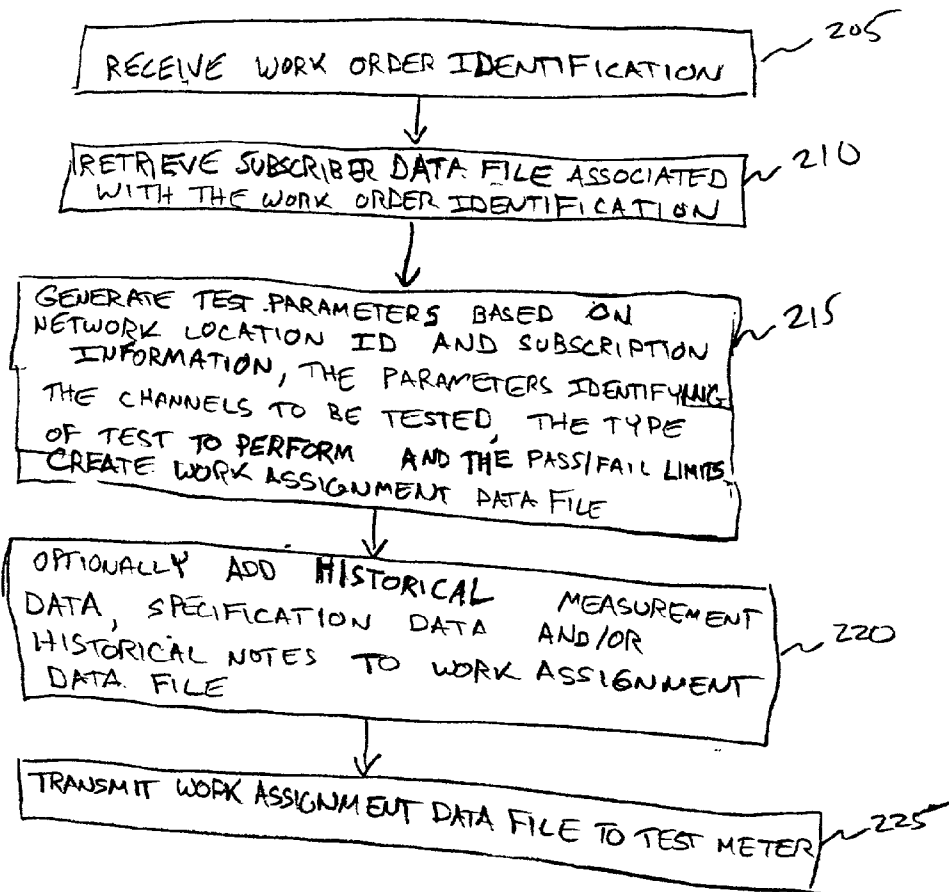 RECEIVE WORK ORDER IDENTIFICATION
205
RETRIEVE SUBSCRIBER DATA FILE ASSOCIATED
WITH THE WORK ORDER IDENTIFICATION
210
GENERATE TEST PARAMETERS BASED ON
NETWORK LOCATION ID AND SUBSCRIPTION
INFORMATION, THE PARAMETERS IDENTIFYING
THE CHANNELS TO BE TESTED, THE TYPE
OF TEST TO PERFORM AND THE PASS/FAIL LIMITS.
CREATE WORK ASSIGNMENT DATA FILE
215
OPTIONALLY ADD HISTORICAL MEASUREMENT
DATA, SPECIFICATION DATA AND/OR
HISTORICAL NOTES TO WORK ASSIGNMENT
DATA FILE
220
TRANSMIT WORK ASSIGNMENT DATA FILE TO TEST METER
225